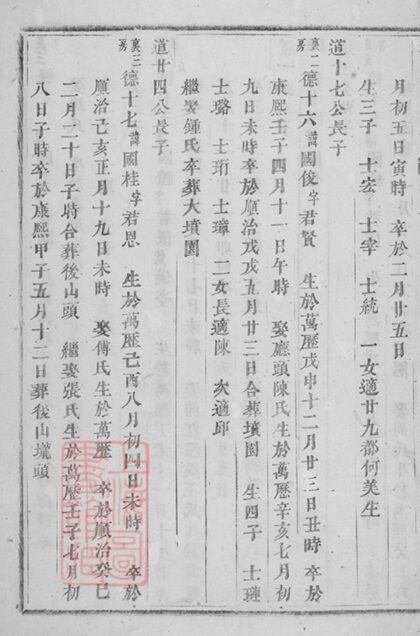 月初五日寅時 卒於二月廿五日
生三子 士宏 士宰 士統 一女適廿九都何美生
道十七公長子
裏二房德十六諱國俊字君賢 生於萬歷戊申十二月廿三日丑時 卒於
康熙壬子四月十一日午時 娶廳頭陳氏生於萬歷辛亥七月初
九日未時卒於順治戊戌五月廿三日合葬墳園 生四子 士璉
士璐 士珩 士璋 二女長適陳 次適邱
繼娶鍾氏卒葬大墳園
道廿四公長子
裏三房德十七諱國桂字君恩 生於萬歷己酉八月初四日未時 卒於
順治己亥正月十九日未時 娶傅氏生於萬歷 卒於順治癸巳
二月二十日子時合葬後山頭 繼娶張氏生於萬歷壬子七月初
八日子時卒於康熙甲子五月十二日葬後山壠頭